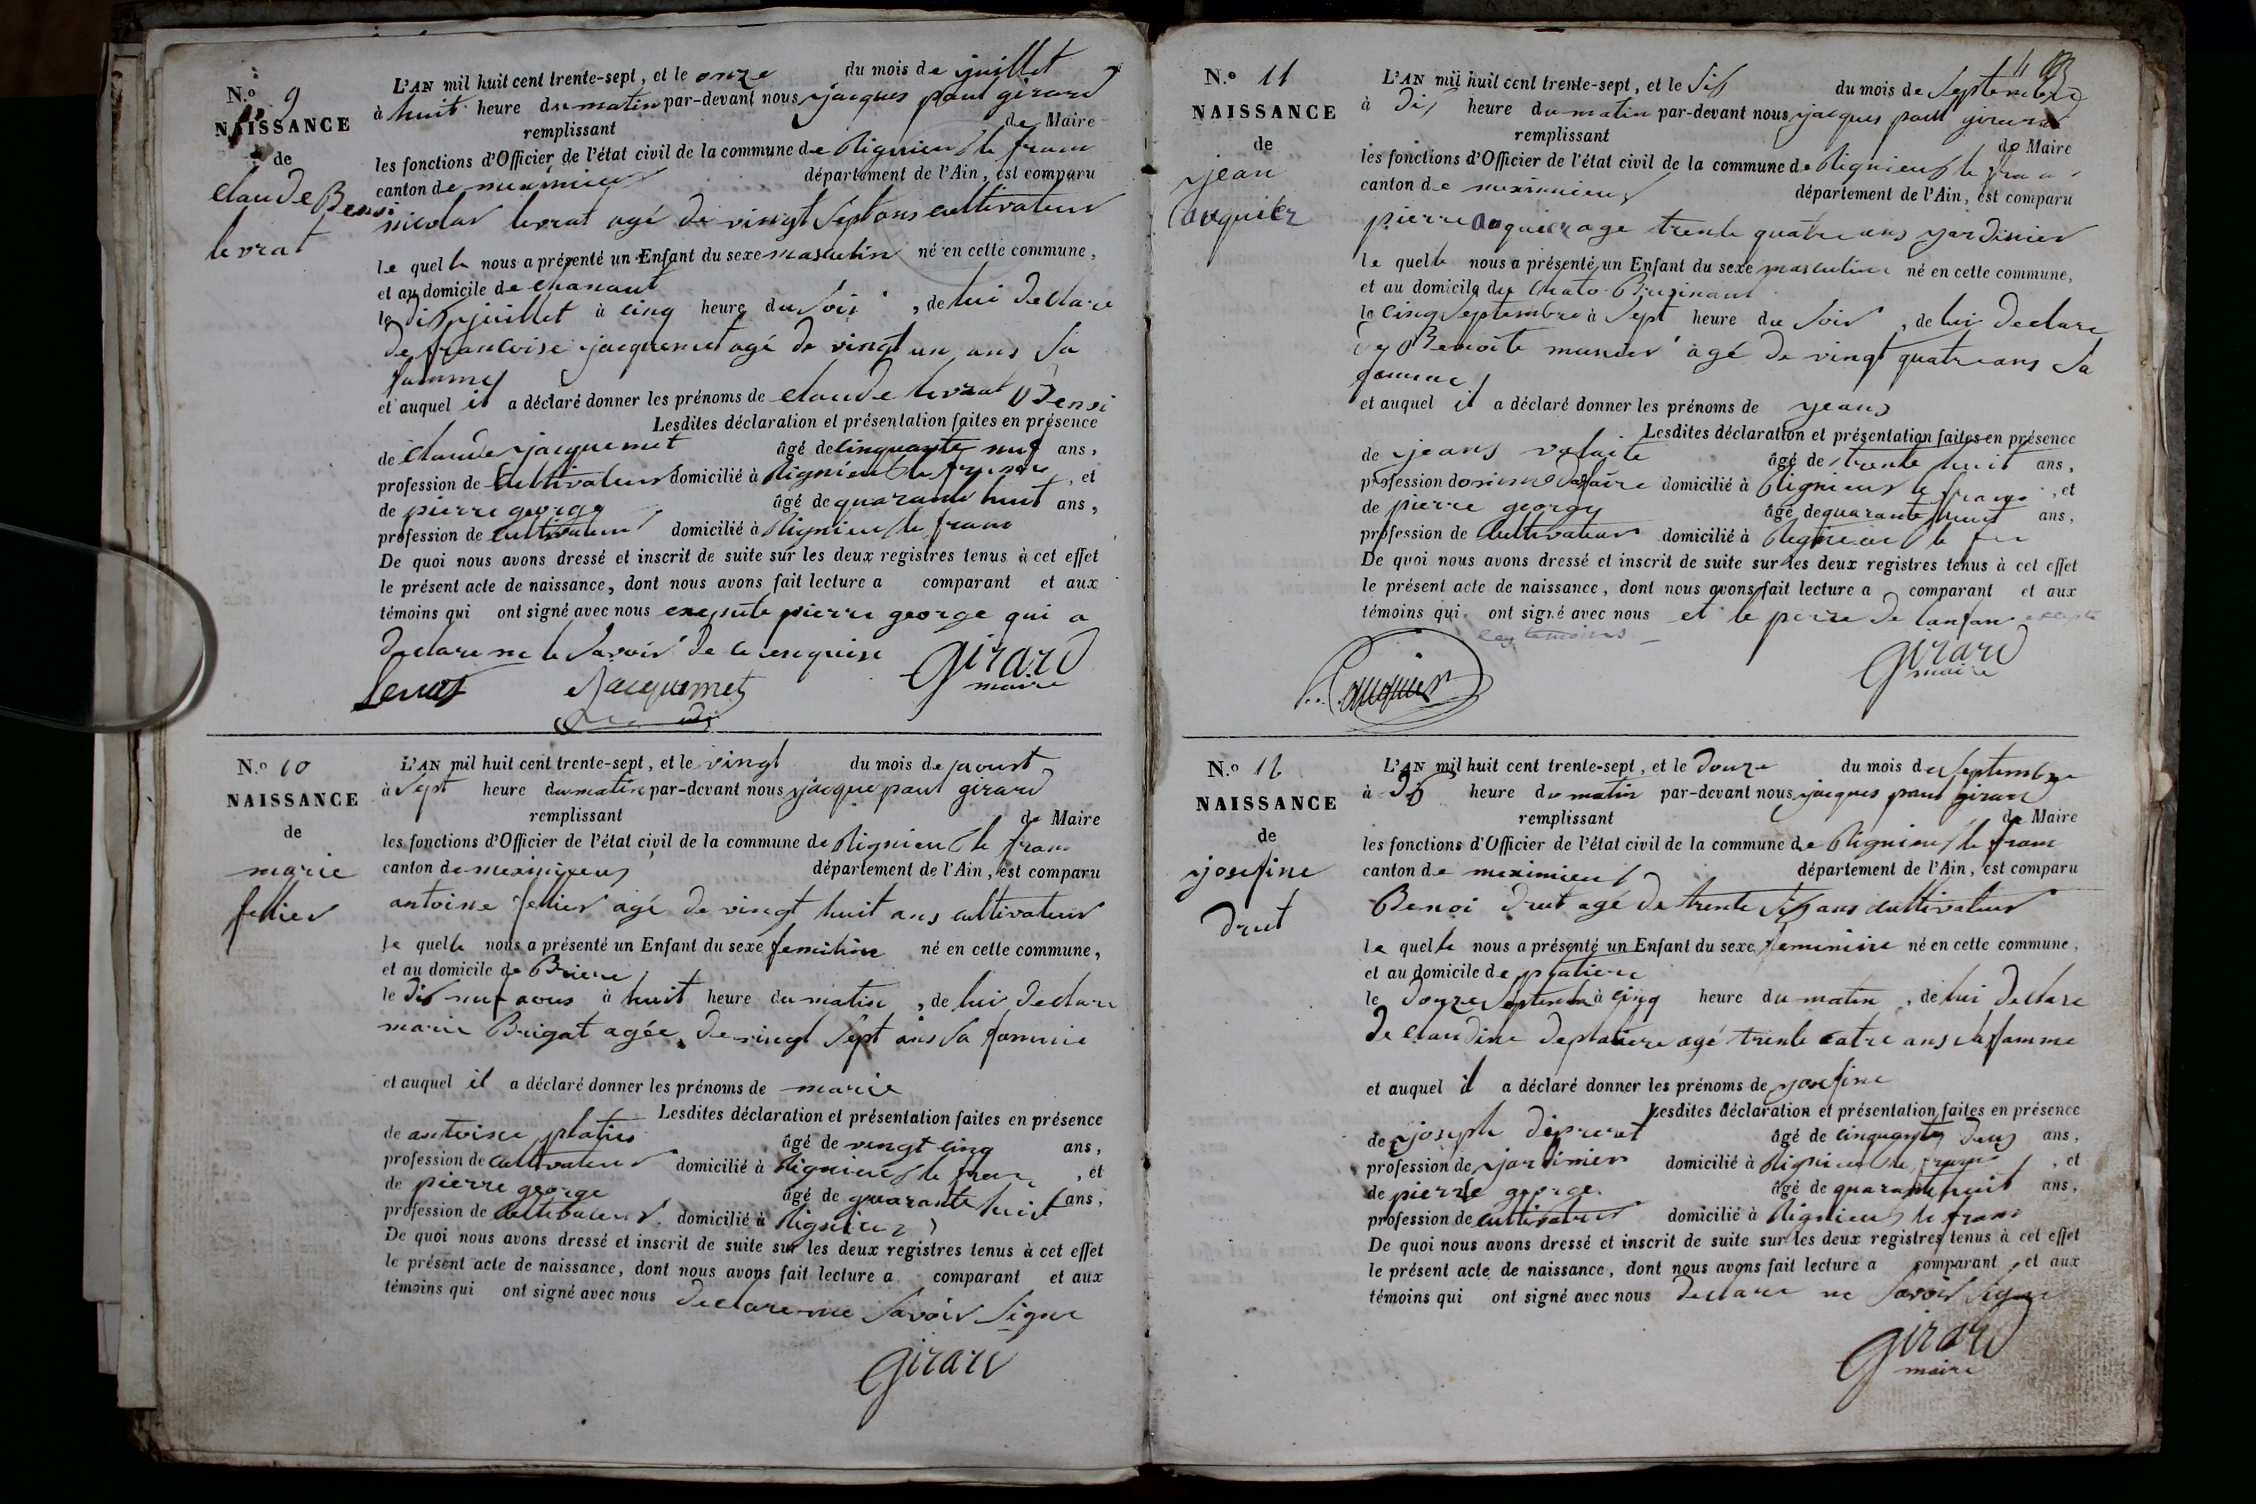 N.o 9
NAISSANCE
de
claude Bensi
levrat
L'AN mil huit cent trente-sept, et le onze du mois de juillet
à huit heure du matin par-devant nous jacques paul girard
remplissant de Maire
les fonctions d'Officier de l'état civil de la commune de Rignieux le franc
canton de meximieux département de l'Ain, est comparu
nicolas levrat agé de vingt Sept ans cultivateur
le quel le nous a présenté un Enfant du sexe masculin né en cette commune,
et au domicile de chanaut
le dix juillet à cinq heure du Soir, de lui declare
de francoise jacquemet agé de vingt un ans Sa
famme
et auquel il a déclaré donner les prénoms de claude levrat Bensi
Lesdites déclaration et présentation faites en présence
de claude jacquemet âgé de cinquante neuf ans,
profession de cultivateur domicilié à Rignieux le franc, et
de pierre george âgé de quarante huit ans,
profession de cultivateur domicilié à Rignieux le franc
De quoi nous avons dressé et inscrit de suite sur les deux registres tenus à cet effet
le présent acte de naissance, dont nous avons fait lecture a comparant et aux
témoins qui ont signé avec nous exepute pierre george qui a
declare ne le Savoir de ce enquise
Levrat Jacquemet girard
maire
N.o 10
NAISSANCE
de
marie
fellier
L'AN mil huit cent trente-sept, et le vingt du mois de aoust
à Sept heure du matin par-devant nous jacque paul girard
remplissant de Maire
les fonctions d'Officier de l'état civil de la commune de Rignieux le franc
canton de meximieux département de l'Ain, est comparu
antoine fellier agé de vingt huit ans cultivateur
le quel le nous a présenté un Enfant du sexe feminine né en cette commune,
et au domicile de Briere
le dix neuf aous à huit heure du matin, de lui declare
marie Brigat agée de vingt Sept ans Sa famme
et auquel il a déclaré donner les prénoms de marie
Lesdites déclaration et présentation faites en présence
de antoine platier âgé de vingt cinq ans,
profession de cultivateur domicilié à Rignieux le franc, et
de pierre george âgé de quarante huit ans,
profession de cultivateur domicilié à Rignieux
De quoi nous avons dressé et inscrit de suite sur les deux registres tenus à cet effet
le présent acte de naissance, dont nous avons fait lecture a comparant et aux
témoins qui ont signé avec nous declare ne Savoir Signe
girard
N.o 11
NAISSANCE
de
jean
Cauquier
L'AN mil huit cent trente-sept, et le Six du mois de Septembre
à dix heure du matin par-devant nous jacques paul girard
remplissant de Maire
les fonctions d'Officier de l'état civil de la commune de Rignieux le franc
canton de meximieux département de l'Ain, est comparu
pierre Cauquier age trente quatre ans jardinier
le quel le nous a présenté un Enfant du sexe masculine né en cette commune,
et au domicile du Chato
le cinq Septembre à Sept heure du Soir, de lui declare
de Benoite munier agé de vingt quatre ans Sa
famme
et auquel il a déclaré donner les prénoms de jeans
Lesdites déclaration et présentation faites en présence
de jeans âgé de trente huit ans,
profession domicilié à Rignieux le franc, et
de pierre george âgé de quarante huit ans,
profession de cultivateur domicilié à Rignieux le
De quoi nous avons dressé et inscrit de suite sur les deux registres tenus à cet effet
le présent acte de naissance, dont nous avons fait lecture a comparant et aux
témoins qui ont signé avec nous et le perre de lanfan excepte
les temoins
Cauquier girard
maire
N.o 12
NAISSANCE
de
josefine
drut
L'AN mil huit cent trente-sept, et le douze du mois de Septembre
à dix heure du matin par-devant nous jacques paul girard
remplissant de Maire
les fonctions d'Officier de l'état civil de la commune de Rignieux le franc
canton de meximieux département de l'Ain, est comparu
Benoi drut agé de trente Six ans cultivateur
le quel le nous a présenté un Enfant du sexe feminine né en cette commune,
et au domicile de platiere
le douze Septembre à cinq heure du matin, de lui declare
de claudine deplatiere agé trente catre ans sa famme
et auquel il a déclaré donner les prénoms de josefine
Lesdites déclaration et présentation faites en présence
de joseph âgé de cinquante deux ans,
profession de jardinier domicilié à Rignieux le franc, et
de pierre george âgé de quarante huit ans,
profession de cultivateur domicilié à Rignieux le franc
De quoi nous avons dressé et inscrit de suite sur les deux registres tenus à cet effet
le présent acte de naissance, dont nous avons fait lecture a comparant et aux
témoins qui ont signé avec nous declare ne Savoir Signe
girard
maire